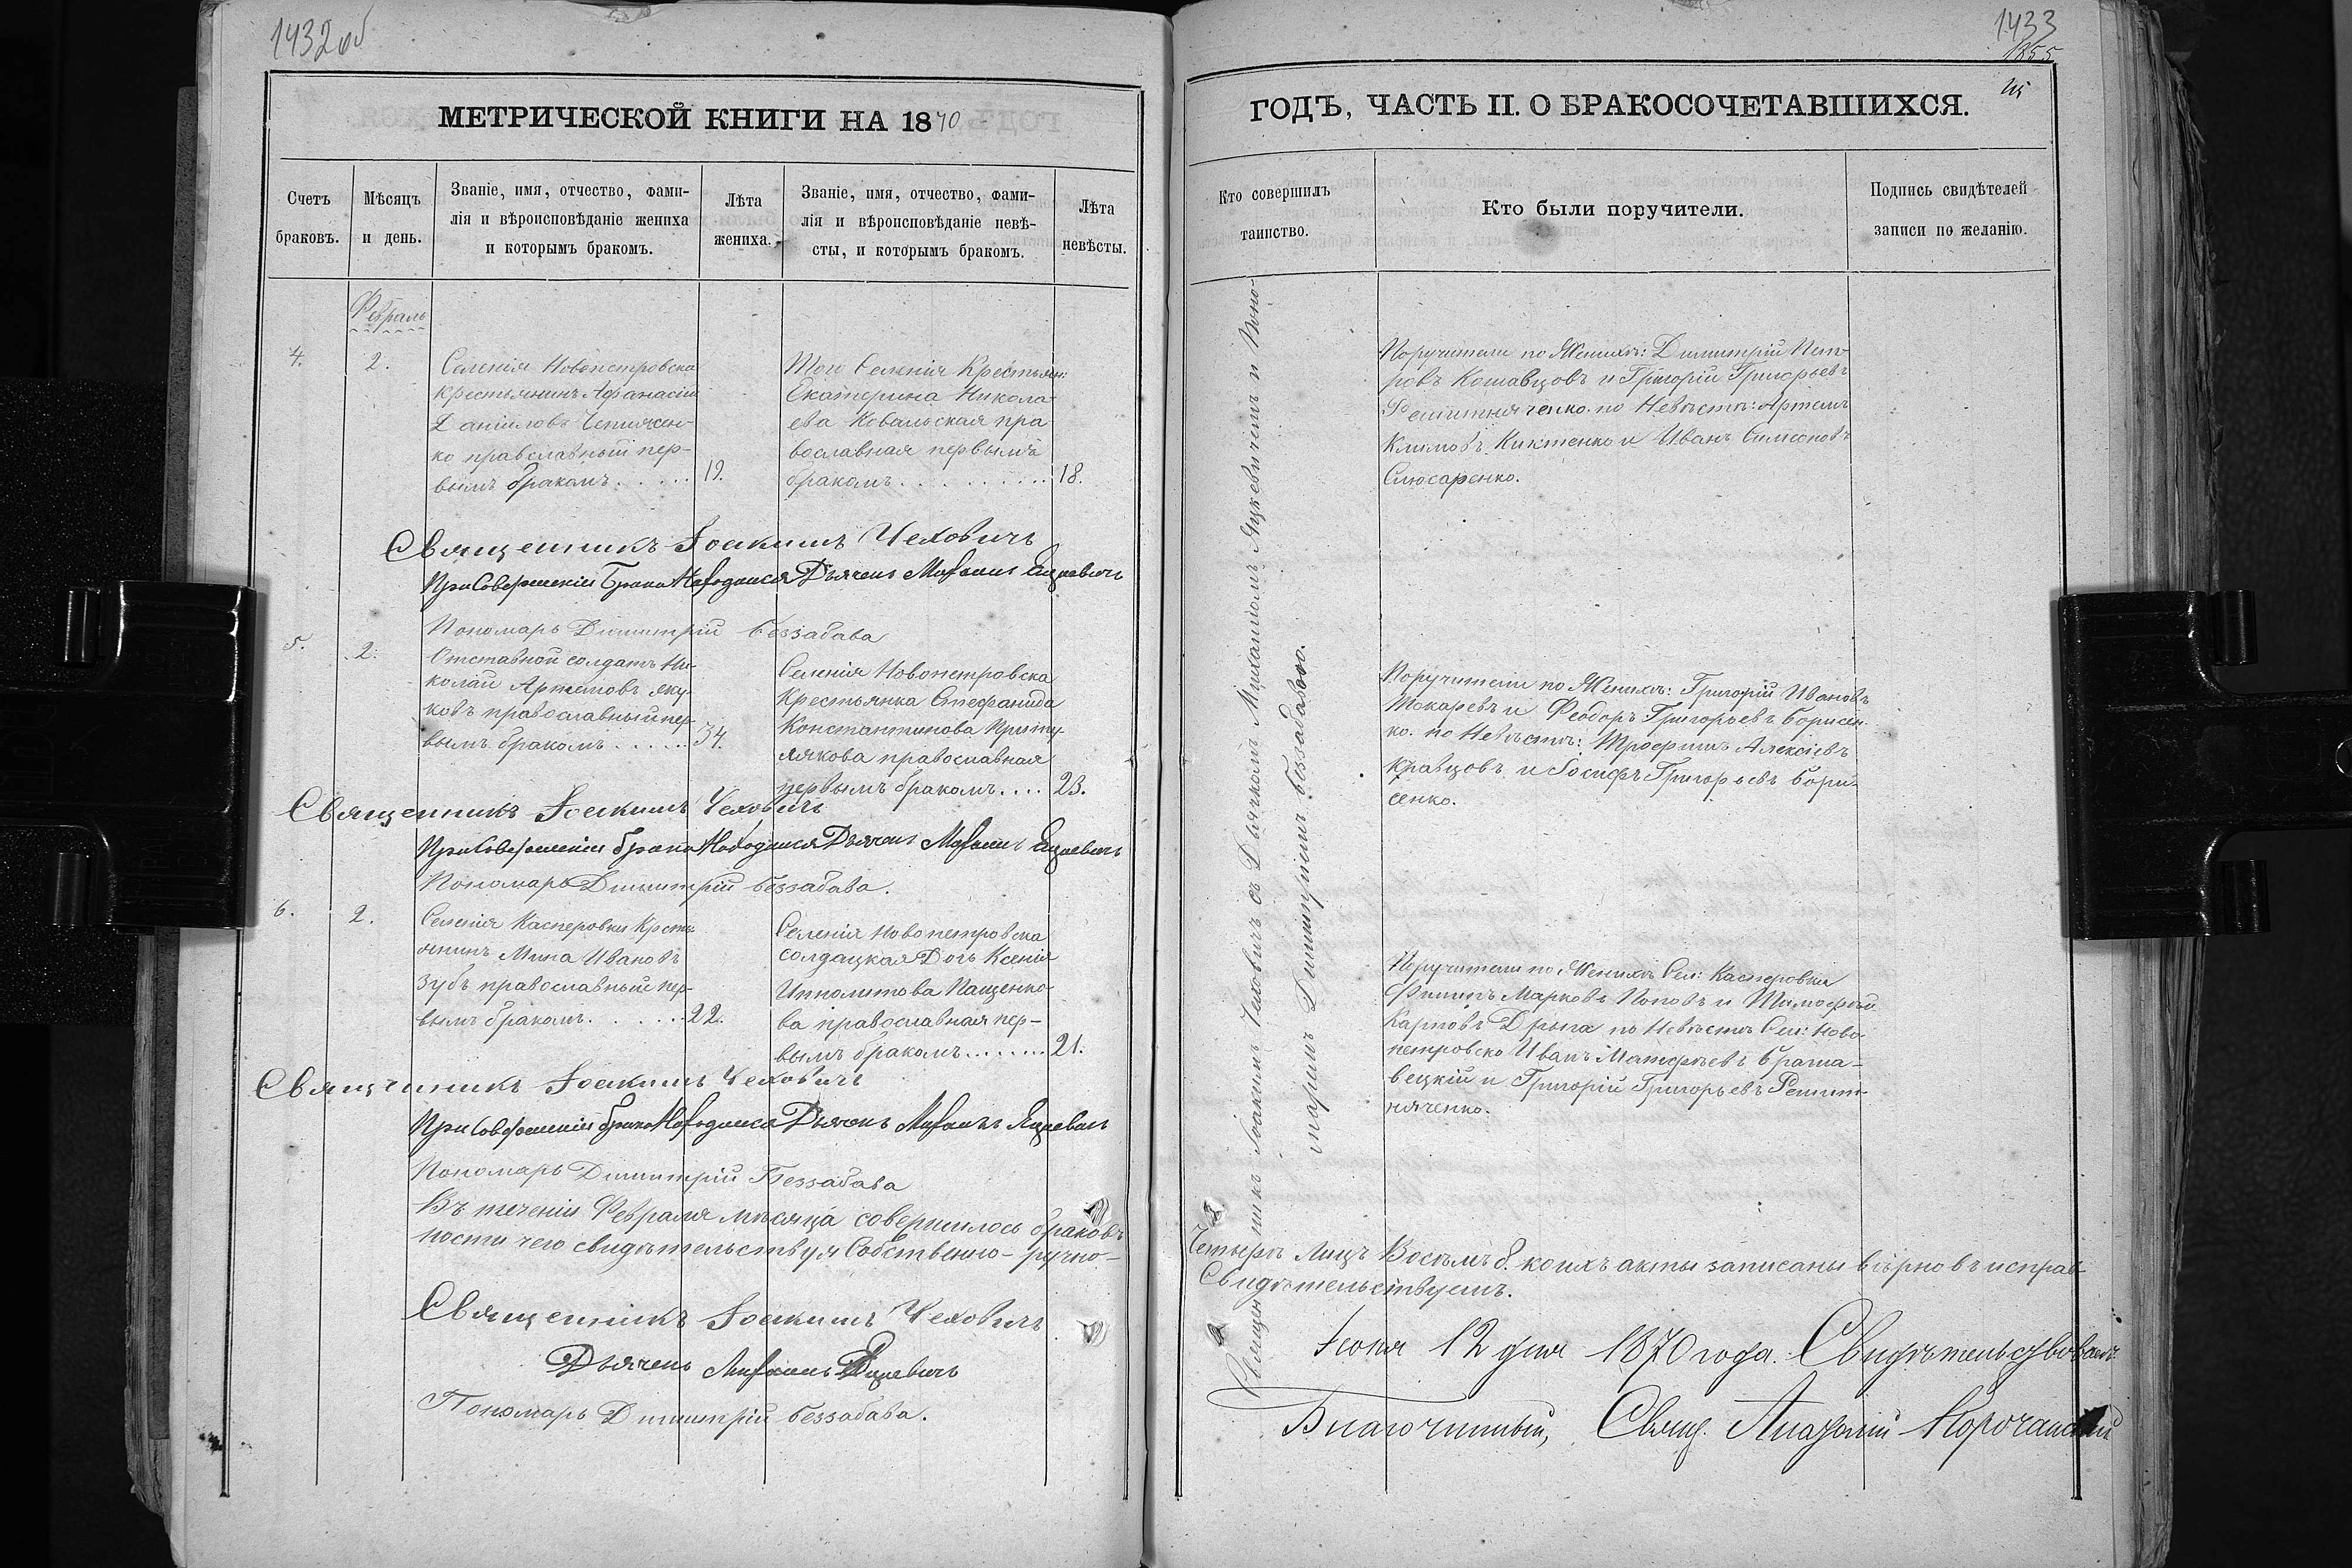 1432об
МЕТРИЧЕСКОЙ КНИГИ НА 1870
Счетъ браковъ.
Мѣсяцъ и день.
Званіе, имя, отчество, фами-
лія и вѣроисповѣданіе жениха
и которымъ бракомъ.
Лѣта жениха.
Званіе, имя, отчество, фами-
лія и вѣроисповѣданіе невѣ-
сты, и которымъ бракомъ.
Лѣта невѣсты.
Февраль
4.
2.
Селенія Новопетровска
крестьянинъ Афанасій
Даніиловъ
ко православный пер-
вымъ бракомъ . . . . . 19.
Того Селенія Крестьян:
Екатерина Никола-
ева Ковальская пра
вославная первымъ
бракомъ . . . . . . . . . . 18.
Священникъ Іоакимъ Чеховичъ
При Совершеніи Брака Находился Дьячекъ Михаилъ Яцкевичъ
Пономарь Димитрій Беззабава
5.
2.
Отставной солдатъ Ни-
колай Артемовъ Яку-
ковъ православный пер-
вымъ бракомъ . . . . . . 34.
Селенія Новопетровска
Крестьянка Стефанида
Константинова Приту-
лякова православная
первымъ бракомъ . . . . 23.
Священникъ Іоакимъ Чеховичъ
При Совершеніи брака Находился Дьячекъ Михаилъ Яцкевичъ
Пономарь Димитрій Беззабава.
6.
2.
Селенія Касперовки Кресть
янинъ Мина Ивановъ
Зубъ православный пер-
вымъ бракомъ . . . . . . 22.
Селенія Новопетровска
солдацкая Дочь Ксенія
Ипполитова Пащенко-
ва православная пер-
вымъ бракомъ . . . . . . . . 21.
Священникъ Іоакимъ Чеховичъ
При Совершеніи брака Находился Дьячекъ Михаилъ Яцкевичъ
Пономарь Димитрій Беззабава
Въ теченіи Февраля мѣсяца совершилось браковъ
ности чего свидѣтельствуя Собственно-ручно-
Священникъ Іоакимъ Чеховичъ
Дьячекъ Михаилъ Яцкевичъ
Пономарь Димитрій Беззабава.
1433
1855
ГОДЪ, ЧАСТЬ II. О БРАКОСОЧЕТАВШИХСЯ.
Кто совершилъ таинство.
Кто были поручители.
Подпись свидѣтелей записи по желанію.
Священникъ Іоакимъ Чеховичъ съ Дьячкомъ Михаиломъ Яцкевичемъ и Поно-
маремъ Димитріемъ Беззабавою.
Поручители по Женихѣ: Димитрій Пет-
ровъ Кошавцовъ и Григорій Григорьевъ
Решитняченко. по Невѣстѣ: Артемъ
Климовъ Киктенко и Иванъ Симеоновъ
Слюсаренко.
Поручители по Женихѣ: Григорій Ивановъ
Токаревъ и Феодоръ Григорьевъ Борисен-
ко. по Невѣстѣ: Трофимъ Алексіевъ
Кравцовъ и Іосифъ Григорьевъ Бори-
сенко.
Поручители по Женихѣ Сел: Касперовки
Филипъ Марковъ Поповъ и Тимофей
Карповъ Дрыга по Невѣстѣ Сел: Ново-
петровско Иванъ Матфѣевъ Браша-
вецкій и Григорій Григорьевъ Решит-
няченко.
Четыре Лицъ Восѣмъ 8. коихъ акты записаны вѣрно въ исправ-
Свидѣтельствуемъ.
Іюня 12 дня 1870 года. Свидѣтельствовалъ
Благочинный, Свящ. Анатолій Корочанскій